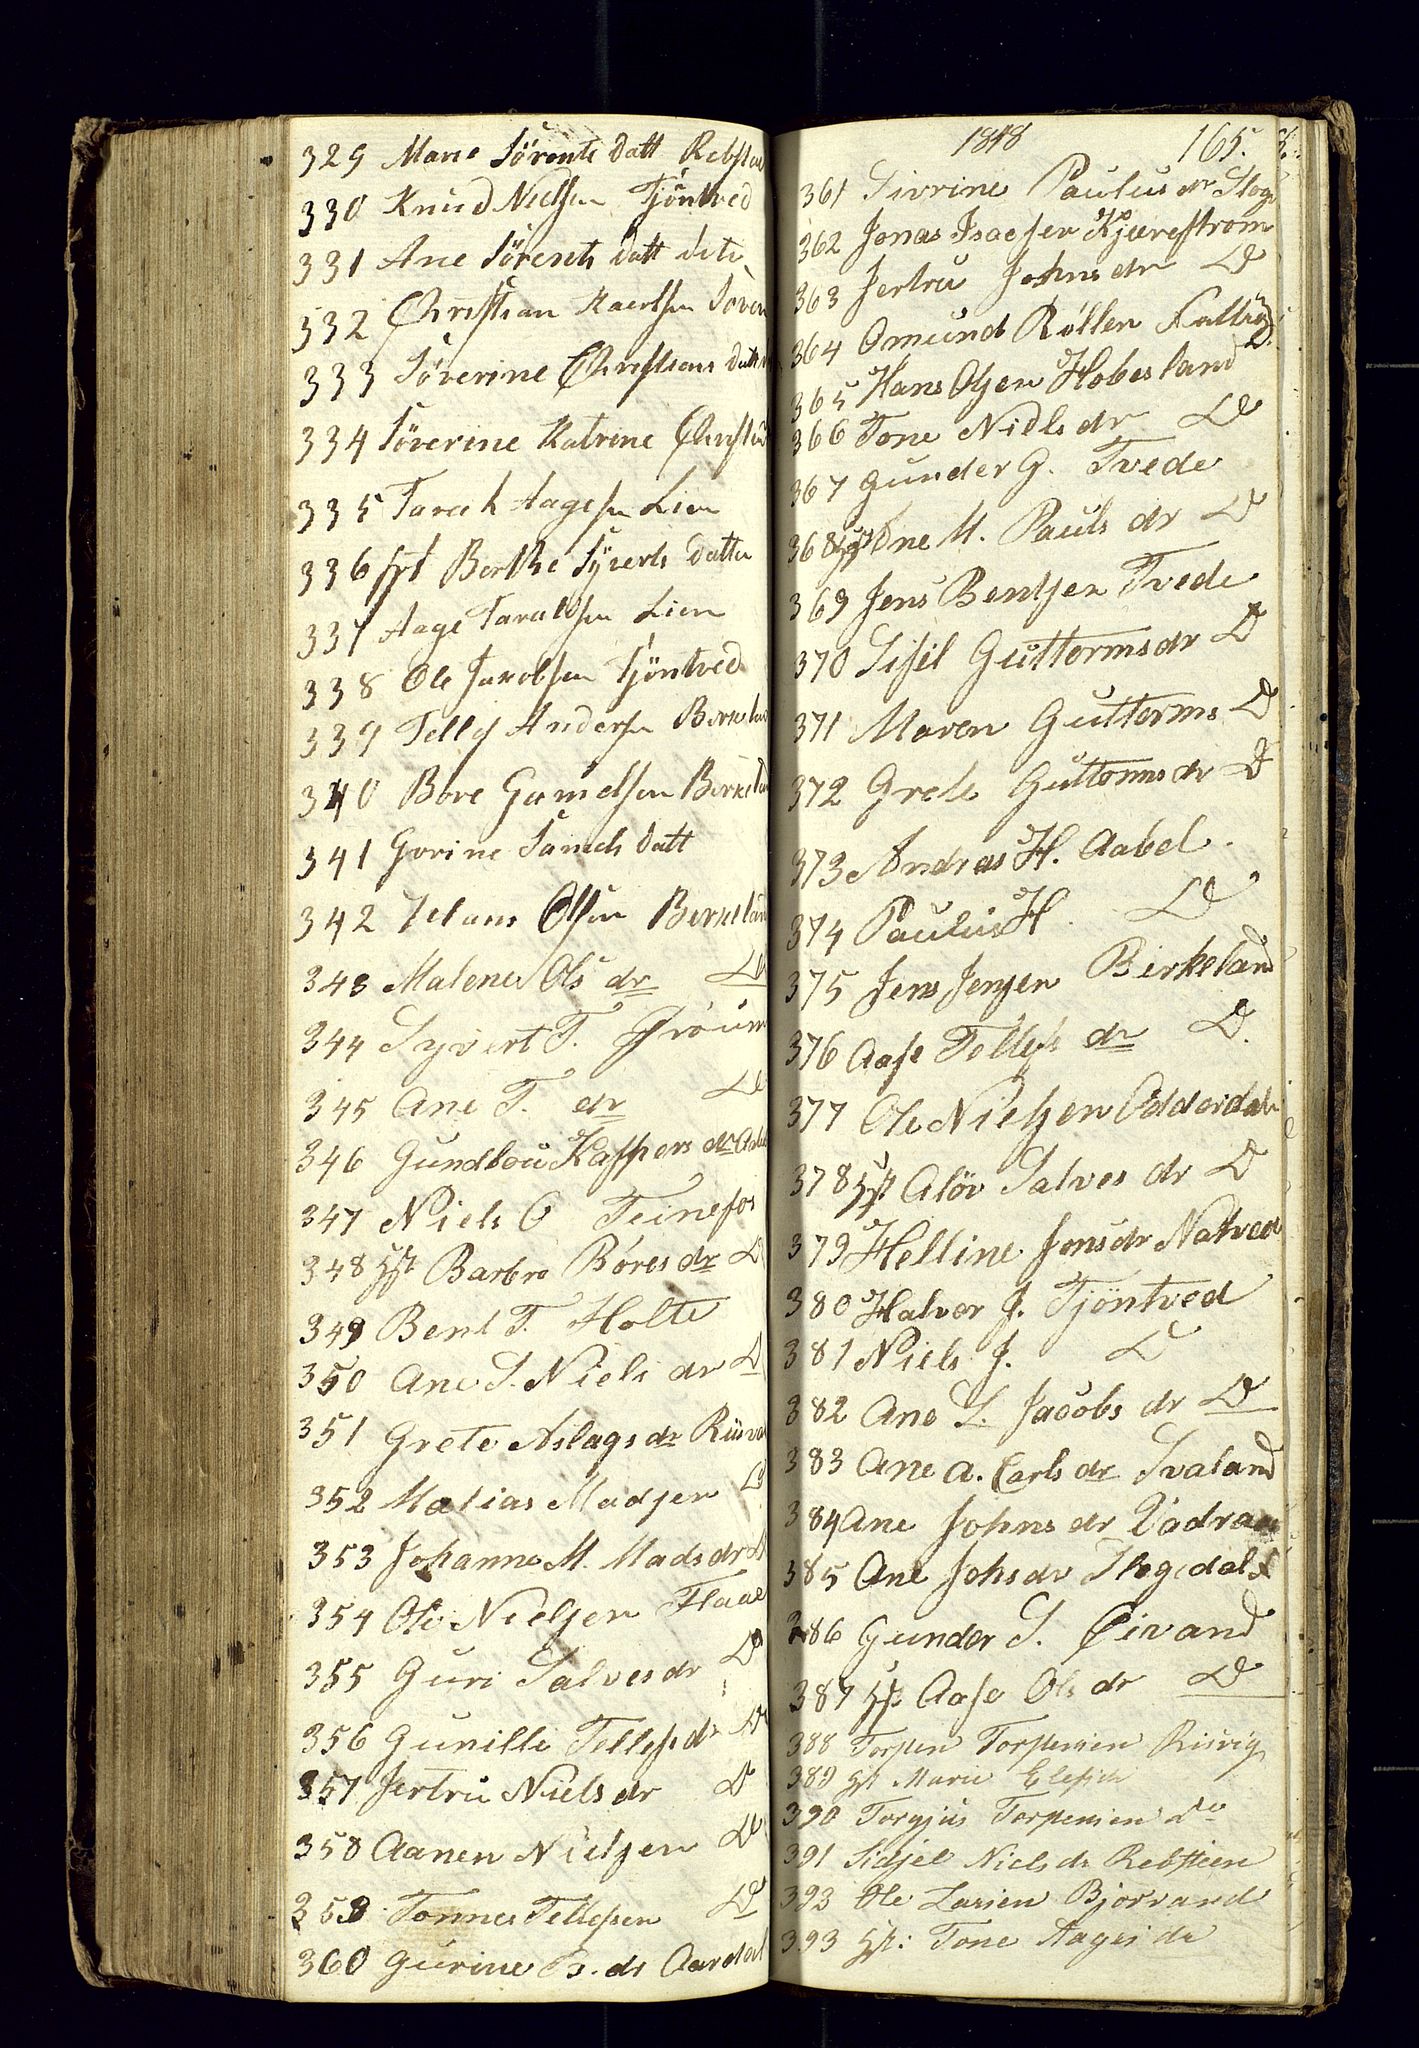 329 Marie Sörents datt Rebsteen
330 Knud Nielsen Tjöntved
331 Ane Sörents datt dito
332 Christian Kaedsen
333 Söverine Christians datt
334 Söverine Katrine
335 Tarald Aagesen Lien
336 hst Berthe Syverts datter
337 Aage Taraldsen Lien
338 Ole Jacobsen Tjöntved
339 Tellef Andersen Birkeland
340 Bore Gamelsen Birkeland
341 Gorine datt
342 Olsen Birkeland
343 Malene Ols dr Do
344 Syvert T.
345 Ane T. dr Do
346 Gundbou Kaspers dr
347 Niels O Teinefos
348 hst Barbro Böres dr Do
349 Bent T. Holte
350 Ane S. Niels dr Do
351 Grete Aslags dr
352 Matias Madsen Do
353 Johanne M. Mads dr Do
354 Ole Nielsen Flaae
355 Guri Salves dr Do
356 Gunille Tellefs dr Do
357 Jertru Niels dr Do
358 Aanen Nielsen Do
359 Tonnes Tellefsen Do
360 Gurine B. dr Aardal
1848 165.
361 Sivrine Paulus dr
362 Jonas Isacsen Kjærestrøm
363 Jertru Johns dr Do
364 Omund Røllen Fattig
365 Hans Olsen Hobesland
366 Tone Niels dr Do
367 Gunder G. Tvede
368 hst Ane M. Pauls dr Do
369 Jens Bentsen Tvede
370 Sisel Guttormsdr Do
371 Maren Guttorms Do
372 Grete Guttormsdr Do
373 Andreas H. Aabel.
374 Paulus H Do
375 Jens Jensen Birkeland
376 Aase Tellefs dr Do.
377 Ole Nielsen Odderdal
378 hst Alöv Salves dr Do
379 Helline Jonsdr Natved
380 Halvor J. Tjöntved
381 Niels J. Do
382 Ane L. Jacobs dr Do
383 Ane A. Carls dr Svaland
384 Ane Johns dr
385 Ane Johsdr
386 Gunder S. Øivand
387 hst Aase Ols dr Do
388 Torsten Torstensen Risvig
389 hst Marie
390 Torgjus Torstensen Do
391 Sidsel Niels dr Rebsteen
393 Ole Larsen Bjorvand
393 hst: Tone Aages dr